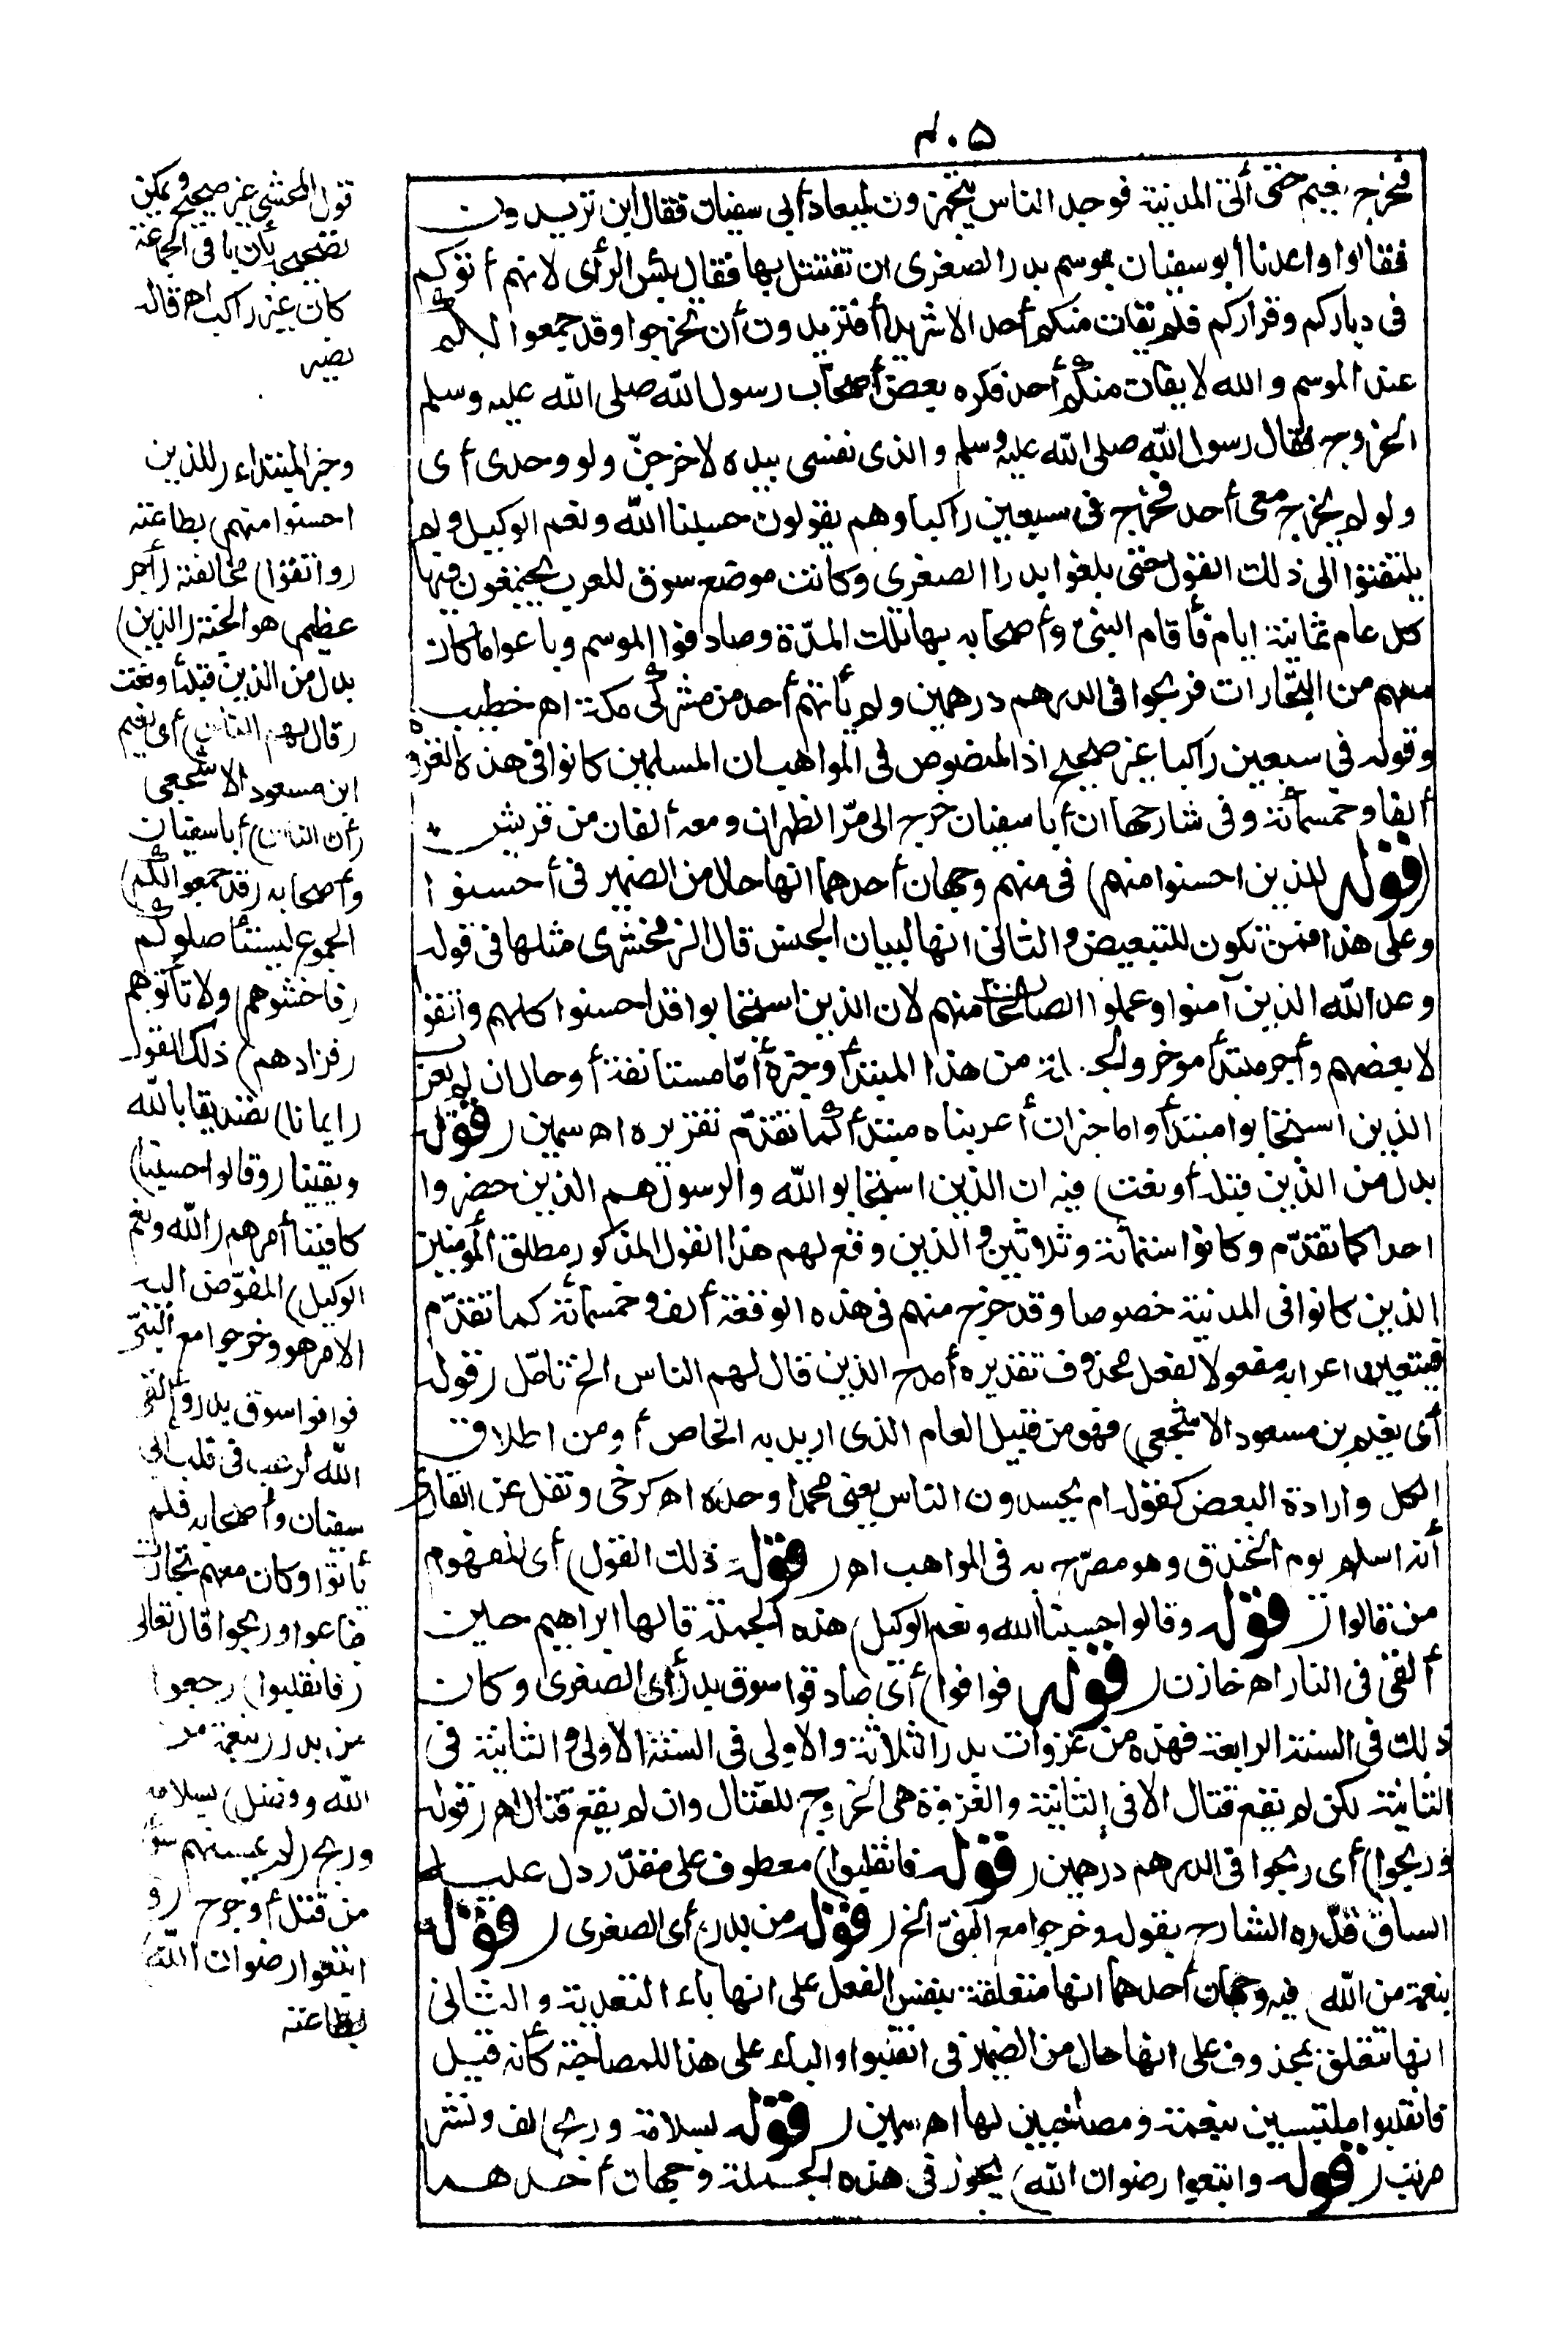 ٤٠٥
فخرج نعيم حتى أتى المدينة فوجد الناس يتجهزون لميعاد أبي سفيان فقال أين تريدون
فقالوا واعدنا أبو سفيان بموسم بدر الصغرى ان نقتتل بها فقال بئس الرأى لانهم أتوكم
فى دياركم وقراركم فلم يفلت منكم أحد الا شريدا أفتريدون أن تخرجوا وقد جمعوا لكم
عند الموسم والله لا يفلت منكم أحد فكره بعض أصحاب رسول الله صلى الله عليه وسلم
الخروج فقال رسول الله صلى الله عليه وسلم والذى نفسى بيده لاخرجنّ ولو وحدى أى
ولو لم يخرج معى أحد فخرج فى سبعين راكبا وهم يقولون حسبنا الله ونعم الوكيل ولم
يلتفتوا الى ذلك القول حتى بلغوا بدرا الصغرى وكانت موضع سوق للعرب يجتمعون فيها
كل عام ثمانية ايام فأقام النبىّ وأصحابه بها تلك المدّة وصادفوا الموسم وباعوا ما كان
معهم من التجارات فربحوا فى الدرهم درهمين ولم يأتهم أحد من مشركى مكة اهـ خطيب
وقوله فى سبعين راكبا غير صحيح اذ المنصوص فى المواهب ان المسلمين كانوا فى هذه الغزوة
ألفا وخمسمائة وفى شارحها ان أبا سفيان خرج الى مرّ الظهران ومعه ألفان من قريش
(قوله للذين احسنوا منهم) فى منهم وجهان أحدهما انها حال من الضمير فى أحسنوا
وعلى هذا فمن تكون للتبعيض والثانى انها لبيان الجنس قال الزمخشرى مثلها فى قوله
وعد الله الذين آمنوا وعملوا الصالحات منهم لان الذين استجابوا قد احسنوا كلهم واتقوا
لا بعضهم وأجر مبتدأ مؤخر والجملة من هذا المبتدأ وخبره أمّا مستأنفة أو حال ان لم يعرب
الذين استجابوا مبتدأ واما خبر ان أعربناه مبتدأ كما تقدّم تقريره اهـ سمين (قوله
بدل من الذين قبله أو نعت) فيه ان الذين استجابوا لله والرسول هم الذين حضروا
احدا كما تقدّم وكانوا ستمائة وثلاثين والذين وقع لهم هذا القول المذكور مطلق المؤمنين
الذين كانوا فى المدينة خصوصا وقد خرج منهم فى هذه الوقعة ألف وخمسمائة كما تقدّم
فيتعين اعرابه مفعولا لفعل محذوف تقديره أمدح الذين قال لهم الناس الخ تأمّل (قوله
أى نعيم بن مسعود الاشجعى) فهو من قبيل العام الذى اريد به الخاص أو من اطلاق
الكل وارادة البعض كقوله ام يحسدون الناس يعنى محمدا وحده اهـ كرخى ونقل عن القارى
أنه اسلم يوم الخندق وهو مصرّح به فى المواهب اهـ (قوله ذلك القول) أى المفهوم
من قالوا (قوله وقالوا حسبنا الله ونعم الوكيل) هذه الجملة قالها ابراهيم حين
ألقى فى النار اهـ خازن (قوله فوافوا) أى صادفوا سوق بدر أى الصغرى وكان
ذلك فى السنة الرابعة فهذه من غزوات بدر الثلاثة والاولى فى السنة الاولى والثانية فى
الثانية لكن لم يقع قتال الا فى الثانية والغزوة هى الخروج للقتال وان لم يقع قتال اهـ (قوله
وربحوا) أى ربحوا فى الدرهم درهمين (قوله فانقلبوا) معطوف على مقدّر دل عليه
السياق قدّره الشارح بقوله وخرجوا مع النبىّ الخ (قوله من بدر) أى الصغرى (قوله
بنعمة من الله) فيه وجهان أحدهما انها متعلقة بنفس الفعل على انها باء التعدية والثانى
انها تتعلق بمحذوف على انها حال من الضمير فى انقلبوا والباء على هذا للمصاحبة كأنه قيل
فانقلبوا ملتبسين بنعمة ومصاحبين لها اهـ سمين (قوله بسلامة وربح) لف ونشر
مرتب (قوله واتبعوا رضوان الله) يجوز فى هذه الجملة وجهان أحدهما
قول المحشى غير صحيح ويمكن
تصحيحه بأن باقى الجماعة
كان غير راكب اهـ قاله
نصر
وخبر المبتداء (للذين
احسنوا منهم) بطاعته
(واتقوا) مخالفته (أجر
عظيم) هو الجنة (الذين)
بدل من الذين قبله أو نعت
(قال لهم الناس) أى نعيم
ابن مسعود الاشجعى
(أن الناس) أبا سفيان
وأصحابه (قد جمعوا لكم)
الجموع ليستأصلوكم
(فاخشوهم) ولا تأتوهم
(فزادهم) ذلك القول
(ايمانا) تصديقا بالله
ويقينا (وقالوا حسبنا)
كافينا أمرهم (الله ونعم
الوكيل) المفوّض اليه
الامر هو وخرجوا مع النبىّ
فوافوا سوق بدر وألقى
الله الرعب فى قلب أبى
سفيان وأصحابه فلم
يأتوا وكان معهم تجارات
فباعوا وربحوا قال تعالى
(فانقلبوا) رجعوا
من بدر (بنعمة من
الله وفضل) بسلامة
وربح (لم يمسسهم سوء)
من قتل أو جرح (و
اتبعوا رضوان الله)
بطاعته